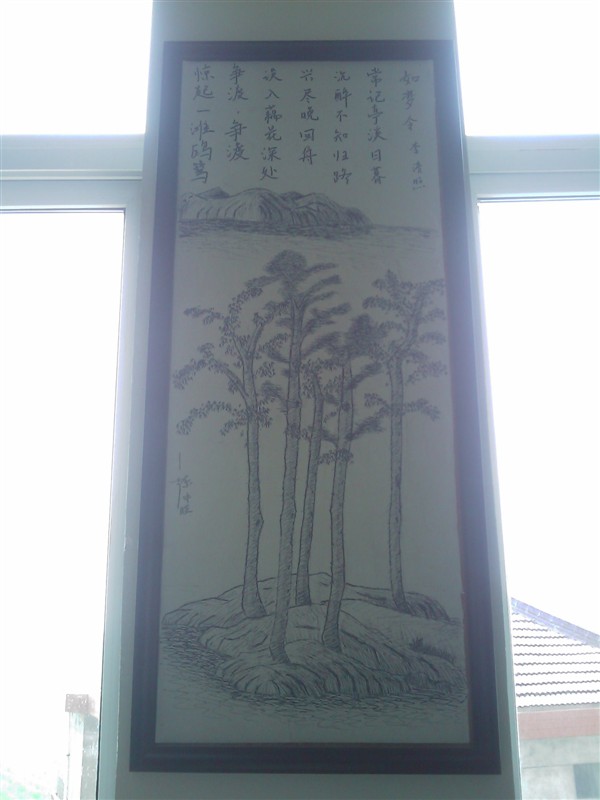 如梦令 李清照
常记亭溪日暮
沉醉不知归路
兴尽晚回舟
误入藕花深处
争渡·争渡
惊起一滩鸥鹭